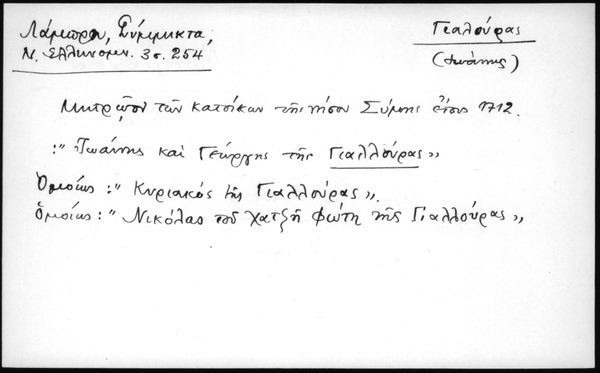 Λάμπρου, Σύμμικτα,
Ν. Ελληνομν. 3 σ. 254
Γιαλούρας
(Ἰωάννης)
Μητρῷον τῶν κατοίκων τῆς νήσου Σύμης ἔτους 1712.
:" Ἰωάννης καὶ Γεώργης τῆς Γιαλλούρας"
Ὁμοίως : " Κυριακός τῆς Γιαλλούρας".
Ὁμοίως : " Νικόλαο τοῦ χατζῆ Φώτη τῆς Γιαλλούρας"